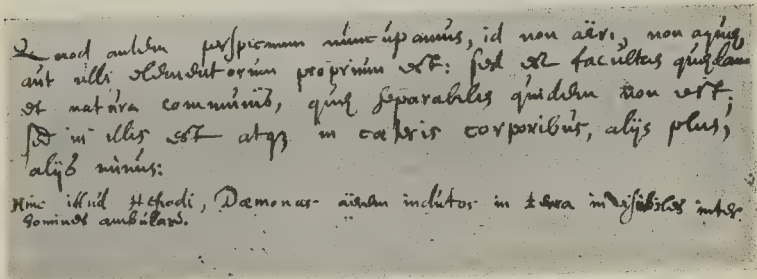 Quod autem perspicuum nuncupamus, id non aëri, non aquæ,
aut ulli elementorum proprium est: sed est facultas quædam
et natura communis, quæ separabilis quidem non est;
sed in illis est atq; in cæteris corporibus, alijs plus,
alijs minus:
Hinc illud Hesiodi, Dæmonas aërem indutos in terra invisibiles inter
homines ambulare.